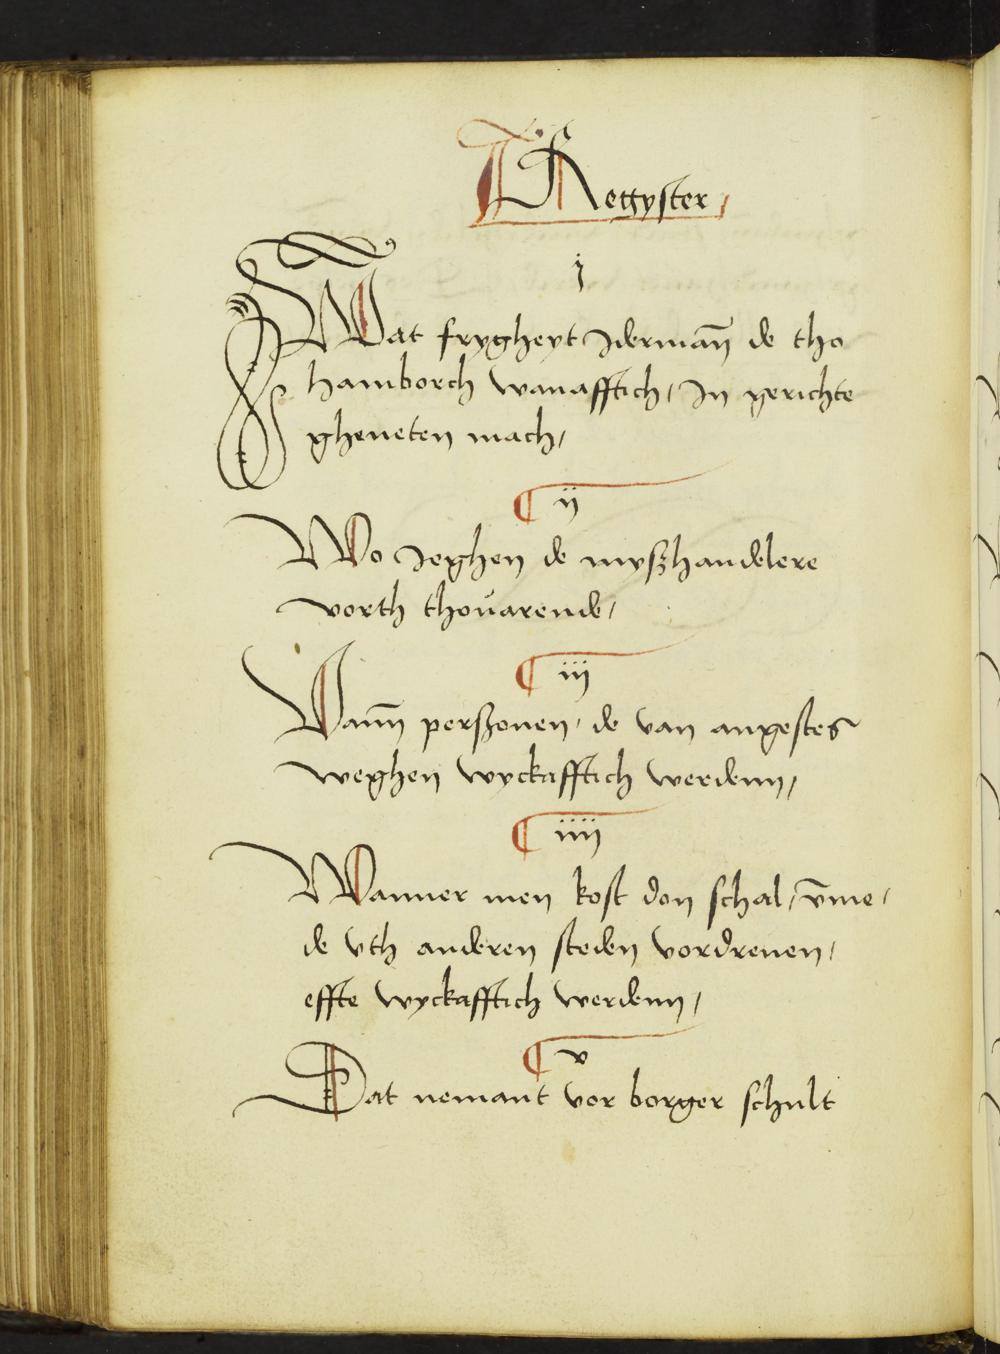 T Regyster,
j
Wat frygheyt Idermañ de tho
hamborch wanafftich, In gerichte
gheneten mach,
ij
Wo Jeghen de myszhandelere
vorth thouarende,
iij
Vann perszonen, de van angestes
weghen wyckafftich werdenn,
iiij
Wanner men kost don schal, v̄me,
de vth anderen steden vordreuen,
effte wyckafftich werdenn,
v
Dat nemant vor borger schult